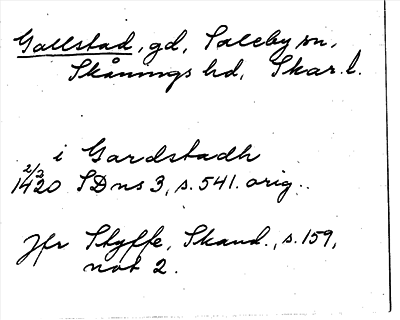 Gallstad, gd, Saleby sn,
Skånings hd, Skar. l.
i Gardstadh
2/3
1420 SD ns 3, s. 541. orig.
Jfr Styffe, Skand., s. 159,
not 2.